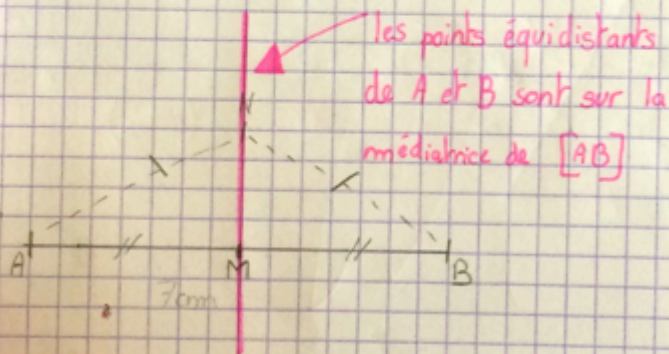 les points équidistants
de A et B sont sur la
médiatrice de [AB]
N
A
M
B
7cm